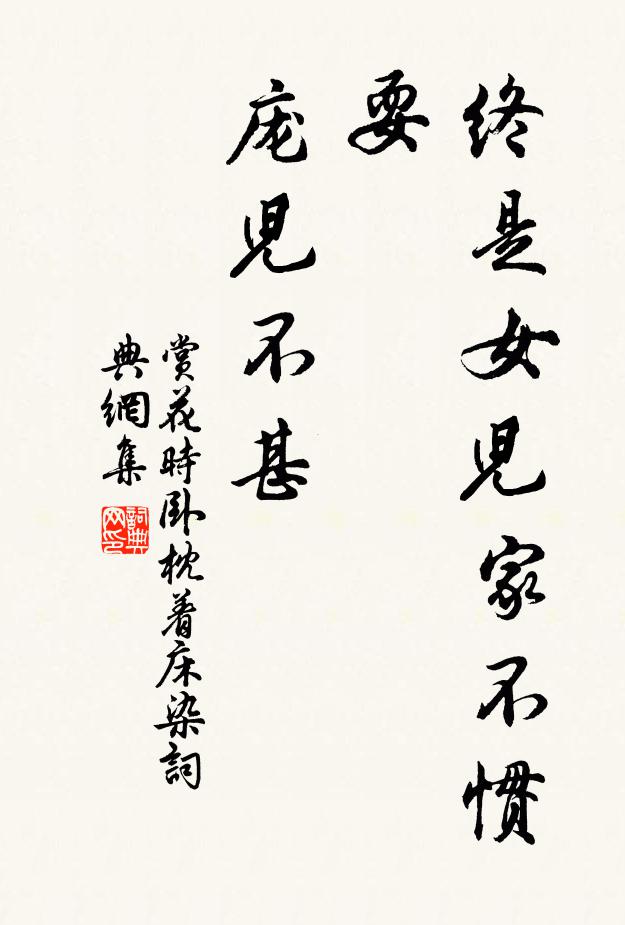 終是女兒家不慣
耍
庬兒不甚
賞花時卧枕着床染詞
典網集
詞典网印